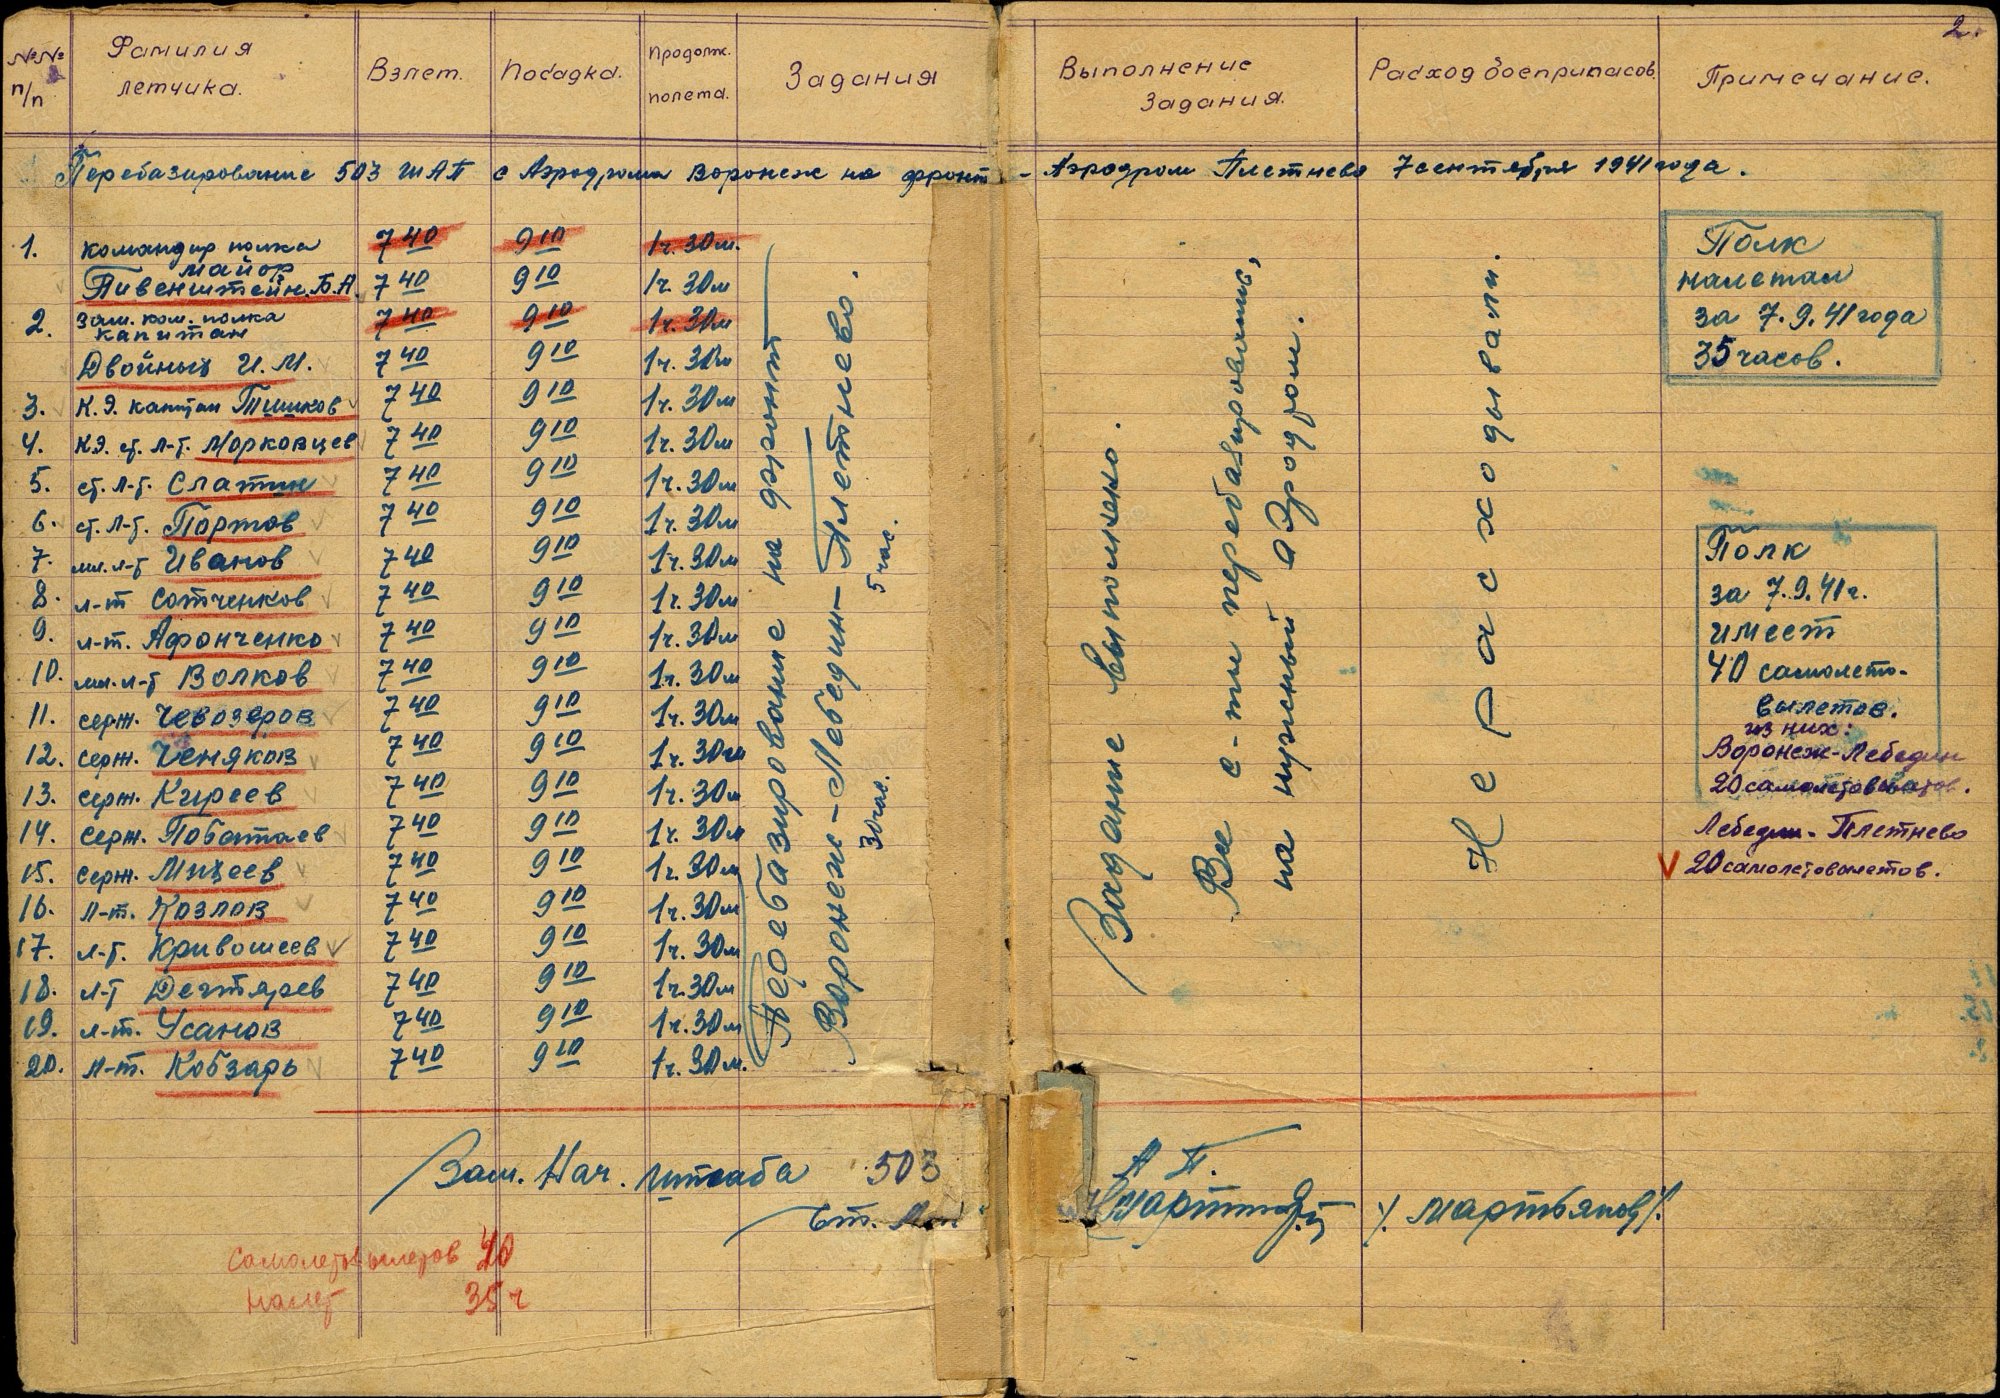 2.
№№ п/п
Фамилия летчика.
Взлет.
Посадка.
Продолж. полета.
Задания
Выполнение Задания.
Расход боеприпасов.
Примечание.
Перебазирование 503 ШАП с Аэродрома Воронеж на фронт - Аэродром Плетнева 7 сентября 1941 года.
1. командир полка 7 40 9 10 1ч. 30м.
майор
Пивенштейн. Б.А. 7 40 9 10 1ч. 30м
2. Зам. ком. полка 7 40 9 10 1ч. 30м
капитан
Двойных И. М. 7 40 9 10 1ч. 30м
3. К.Э. капитан Тишков 7 40 9 10 1ч. 30м
4. К.Э. ст. л-т. Морковцев 7 40 9 10 1ч. 30м
5. ст. л-т. Слатин 7 40 9 10 1ч. 30м
6. ст. л-т. Портов 7 40 9 10 1ч. 30м
7. мл. л-т Иванов 7 40 9 10 1ч. 30м
8. л-т Сотченков 7 40 9 10 1ч. 30м
9. л-т. Афонченко 7 40 9 10 1ч. 30м
10. мл. л-т Волков 7 40 9 10 1ч. 30м
11. серж. Чевозеров 7 40 9 10 1ч. 30м
12. серж. Ченяков 7 40 9 10 1ч. 30м
13. серж. Киреев 7 40 9 10 1ч. 30м
14. серж. Побатаев 7 40 9 10 1ч. 30м
15. серж. 7 40 9 10 1ч. 30м
16. л-т. Козлов 7 40 9 10 1ч. 30м
17. л-т. Кривошеев 7 40 9 10 1ч. 30м
18. л-т Дегтярев 7 40 9 10 1ч. 30м
19. л-т. Усанов 7 40 9 10 1ч. 30м
20. л-т. Кобзарь 7 40 9 10 1ч. 30м.
Перебазирование на фронт
Воронеж - Лебедин - Плетнево.
30 час. 5 час.
Задание выполнено.
Все с-ты перебазировались,
на нужный аэродром.
Не расходывали.
Полк
налетал
за 7.9.41 года
35 часов.
Полк
за 7.9.41 г.
имеет
40 самолето-
вылетов.
из них:
Воронеж-Лебедин
20 самолетовылетов.
Лебедин-Плетнево
20 самолетовылетов.
Зам. Нач. штаба 503 АП.
ст.
/Мартьянов/.
Самолетовылетов 40
налет 35 ч